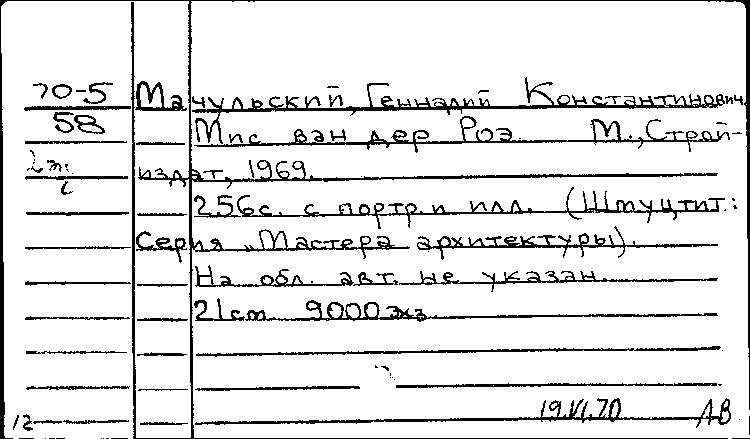 70-5 Мачульский, Геннадий Константинович.
58 Мис ван дер Роэ. М., Строй-
издат, 1969.
256с. с портр. и илл. (Шмуцтит.:
Серия „Мастера архитектуры).
На обл. авт. не указан.
21cm 9000 экз.
19.VI.70 АВ
12